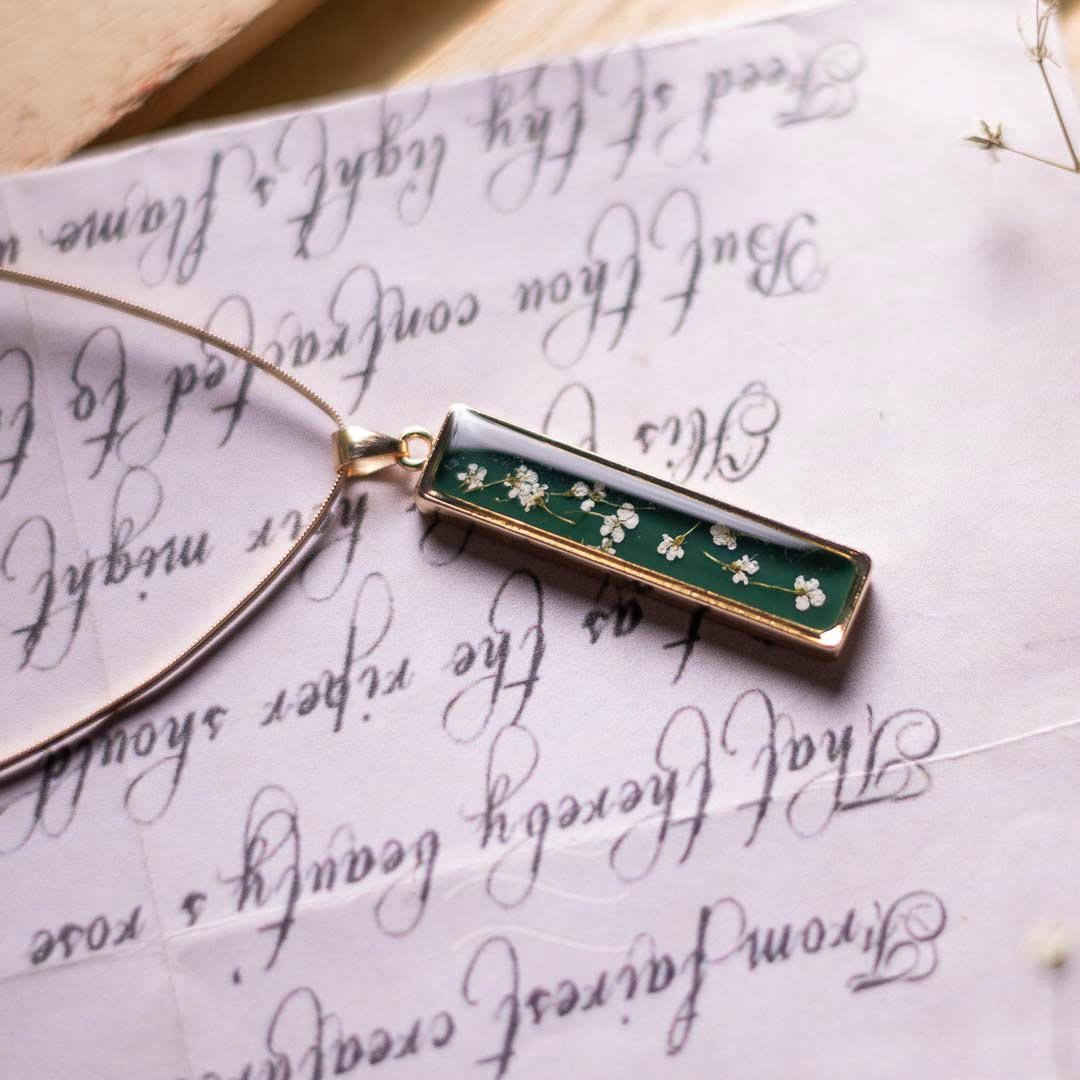 From fairest creatur
That thereby beauty s rose
as the riper should
His might
But thou contracted to
Feed st thy light s flame